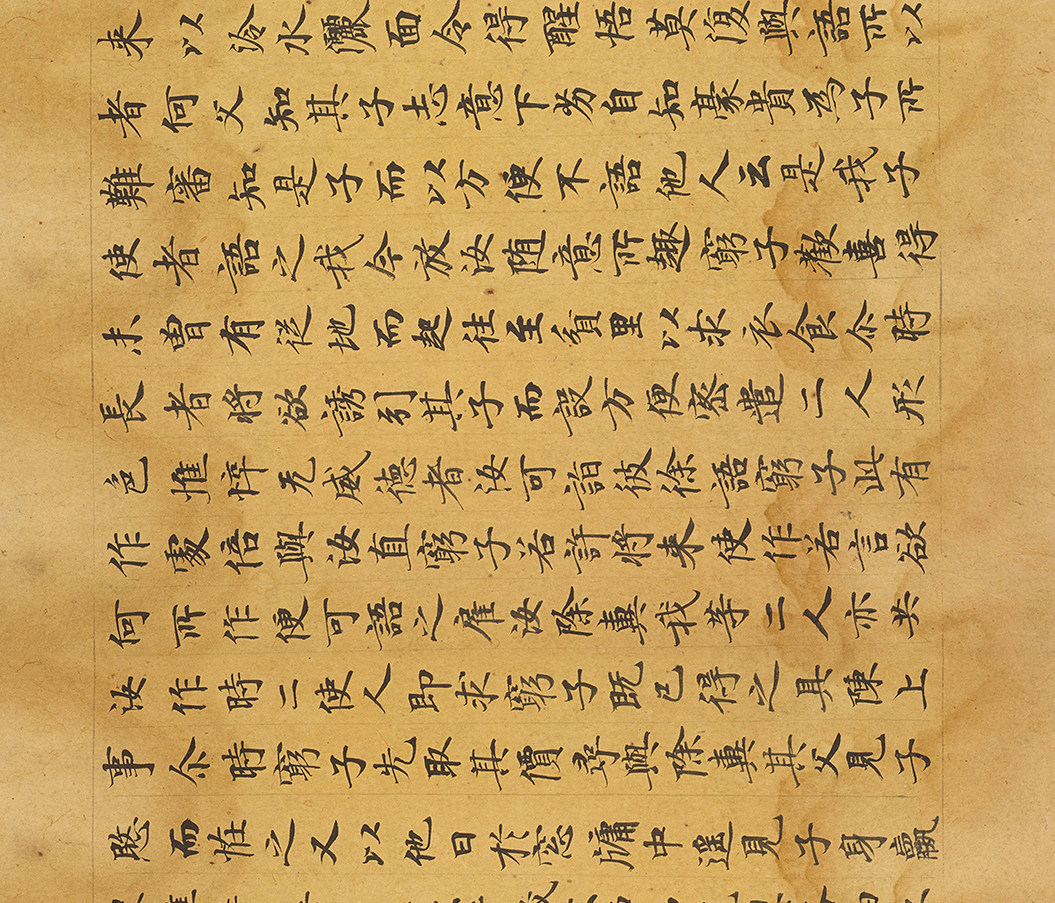 来以冷水灑面令得醒悟莫復與語所以
者何父知其子志意下劣自知豪貴為子所
難審知是子而以方便不語他人云是我子
使者語之我今放汝随意所趣窮子歡喜得
未曾有従地而起往至貧里以求衣食尒時
長者将欲誘引其子而設方便密遣二人形
色憔悴无威德者汝可詣彼徐語窮子此有
作處倍與汝直窮子若許将来使作若言欲
何所作便可語之雇汝除糞我等二人亦共
汝作時二使人即求窮子既已得之具陳上
事尒時窮子先取其價尋與除糞其父見子
愍而恠之又以他日於窓牖中遥見子身羸